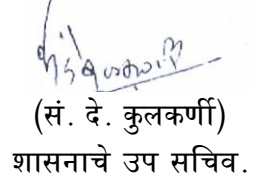 (सं. दे. कुलकर्णी)
शासनाचे उप सचिव.